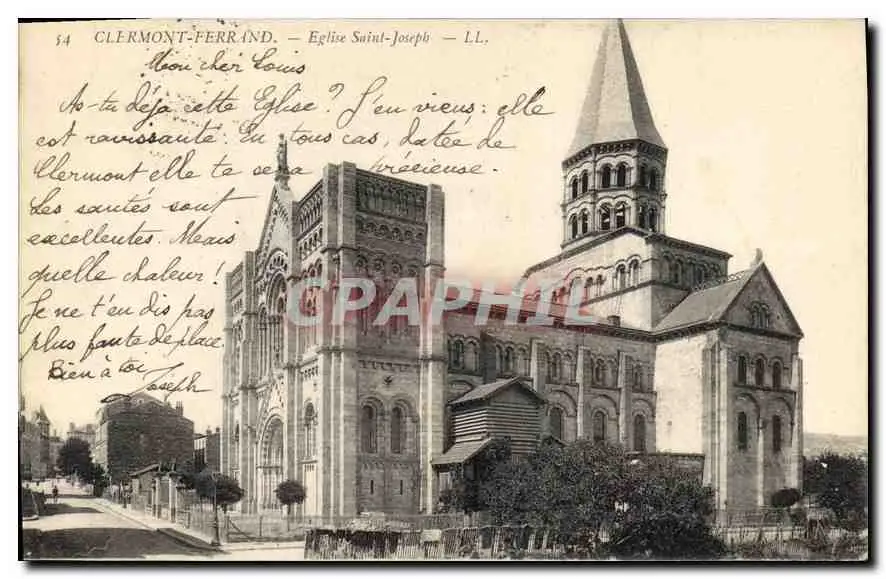 54 CLERMONT-FERRAND. — Eglise Saint-Joseph — LL.
Mon cher Louis
As-tu déjà cette Eglise ? J'en viens : elle
est ravissante. En tous cas, datée de
Clermont, elle te sera précieuse.
Les santés sont
excellentes. Mais
quelle chaleur !
Je ne t'en dis pas
plus faute de place.
Bien à toi
Joseph
CPARAPHIL.COM